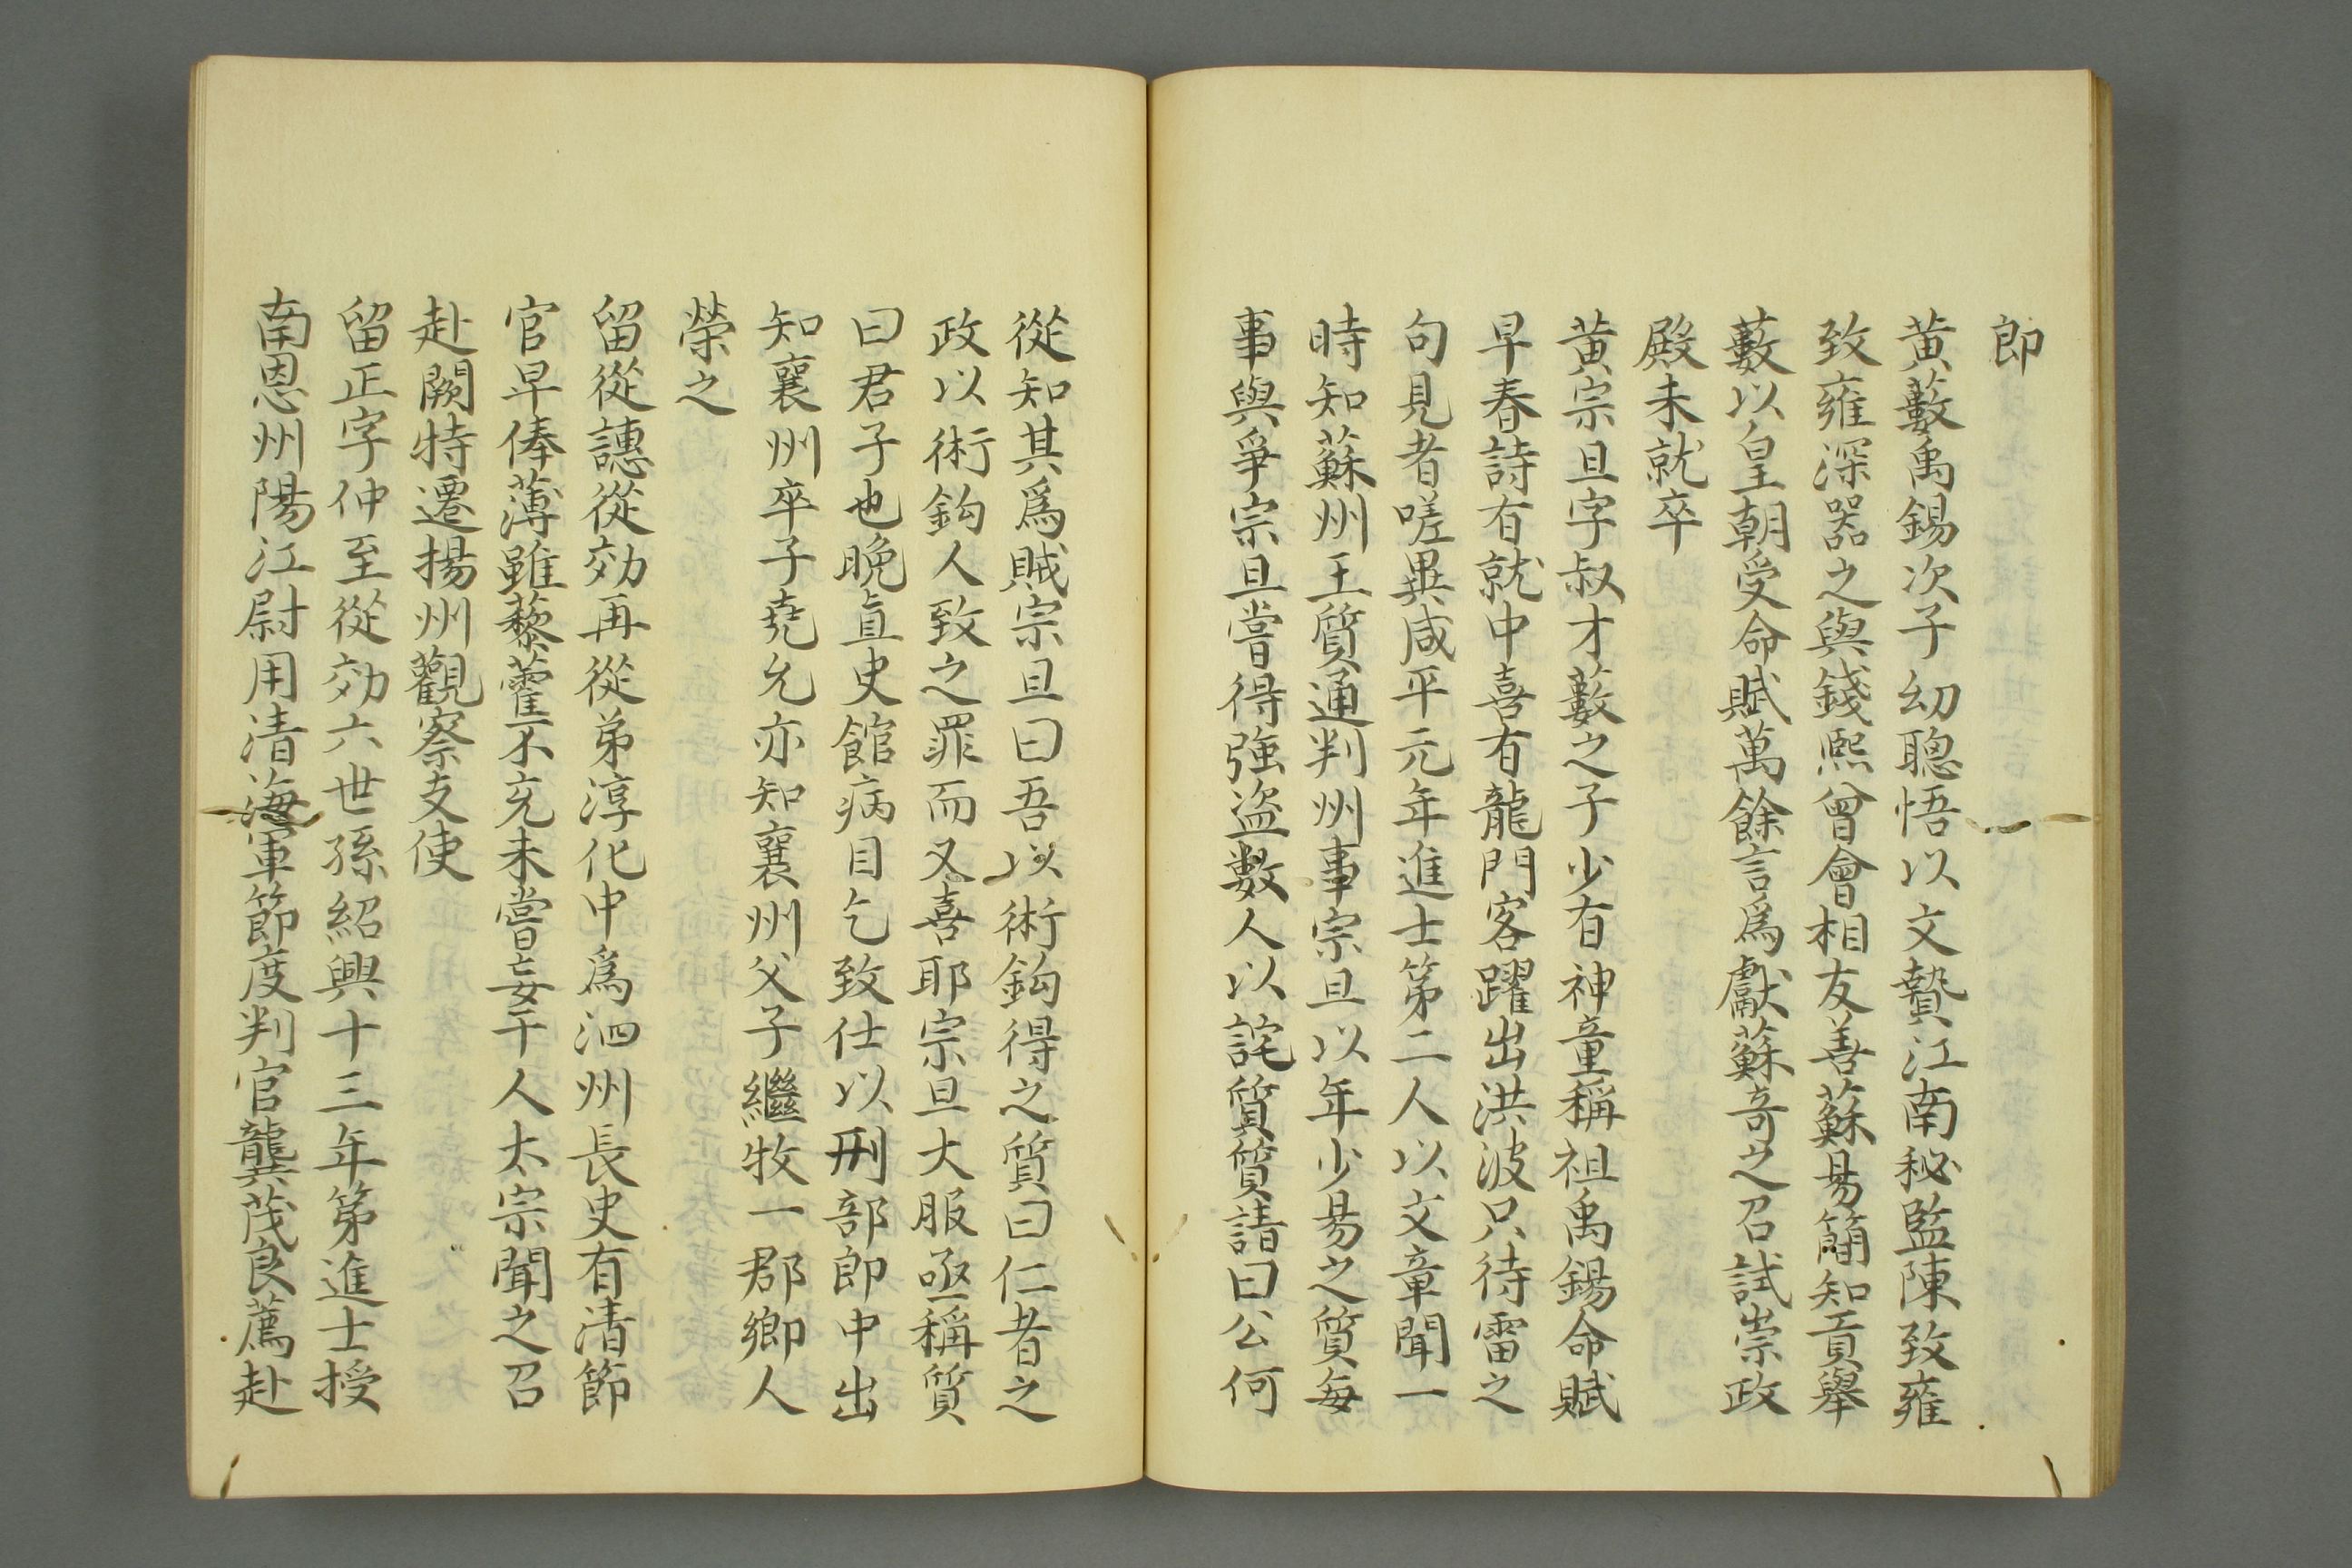 郎
黄藪禹錫次子幼聰悟以文贄江南秘監陳致雍
致雍深器之與錢熙曾會相友善蘇易簡知貢舉
藪以皇朝受命賦萬餘言爲獻蘇竒之召試崇政
殿未就卒
黄宗旦字叔才藪之子少有神童稱祖禹錫命賦
早春詩有就中喜有龍門客躍出洪波只待雷之
句見者嗟異咸平元年進士第二人以文章聞一
時知蘇州王質通判州事宗旦以年少易之質每
事與爭宗旦嘗得強盜數人以詫質質請曰公何
從知其爲賊宗旦曰吾以術鈎得之質曰仁者之
政以術鈎人致之罪而又喜耶宗旦大服亟稱質
曰君子也晚直史館病目乞致仕以刑部郎中出
知襄州卒子堯允亦知襄州父子繼牧一郡鄉人
榮之
留從譓從効再從弟淳化中爲泗州長史有清節
官早俸薄雖藜藿不充未嘗妄干人太宗聞之召
赴闕特遷揚州觀察支使
留正字仲至從効六世孫紹興十三年第進士授
南恩州陽江尉用清海軍節度判官龔茂良薦赴